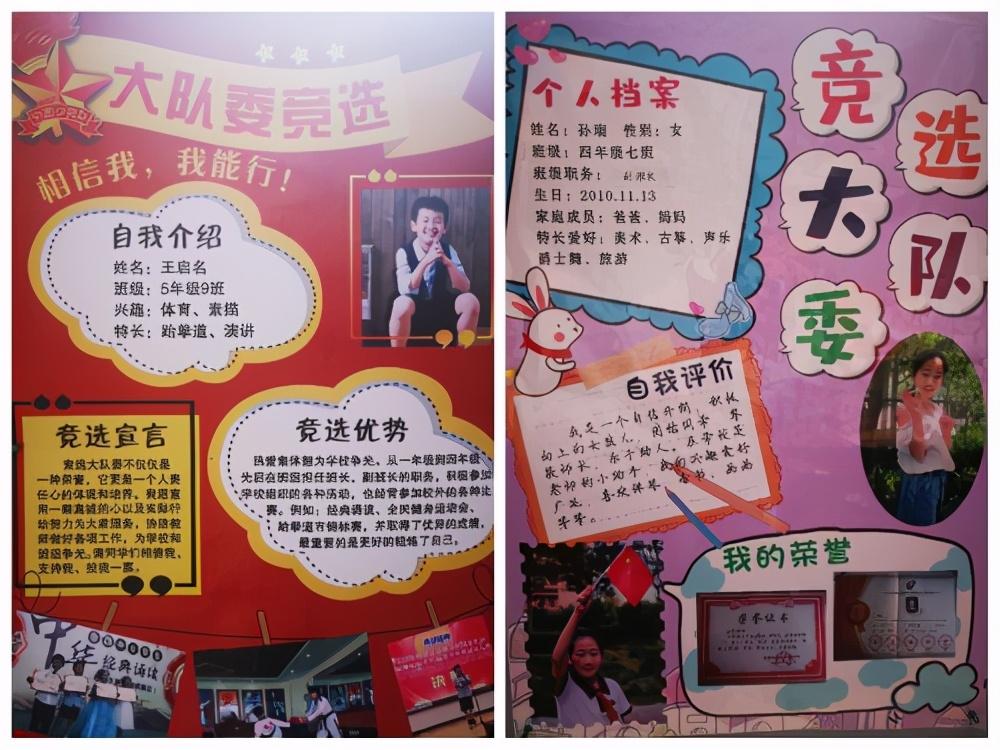 大队委竞选
相信我，我能行！
自我介绍
姓名：王启名
班级：5年级9班
兴趣：体育、素描
特长：跆拳道、演讲
竞选宣言
竞选大队委不仅仅是
一种荣誉，它更是一个人责
任心的体现和培养。我愿意
用一颗真诚的心以及实际行
给努力为大家服务，协助老
师做好各项工作，为学校和
班级争光。请同学们相信我、
支持我、投我一票。
竞选优势
热爱集体想为学校争光。从一年级到四年级
先后在班里担任班长、副班长的职务，积极参加
学校组织的各种活动，也经常参加校外的各种比
赛。例如：经典诵读、全民健身运动会、
跆拳道市锦标赛，并取得了优异的成绩，
最重要的是更好的锻炼了自己。
中华
经典诵读
个人档案
姓名：孙 性别：女
班级：四年级七班
班级职务：副班长
生日：2010.11.13
家庭成员：爸爸、妈妈
特长爱好：美术、古筝、声乐
爵士舞、旅游
竞选大队委
自我评价
我是一个自信开朗，积极
向上的女孩儿。团结同学
师长，乐于助人。
老师的小助手。我的兴趣爱好
广泛。喜欢弹琴、看书、画画
等等。
我的荣誉